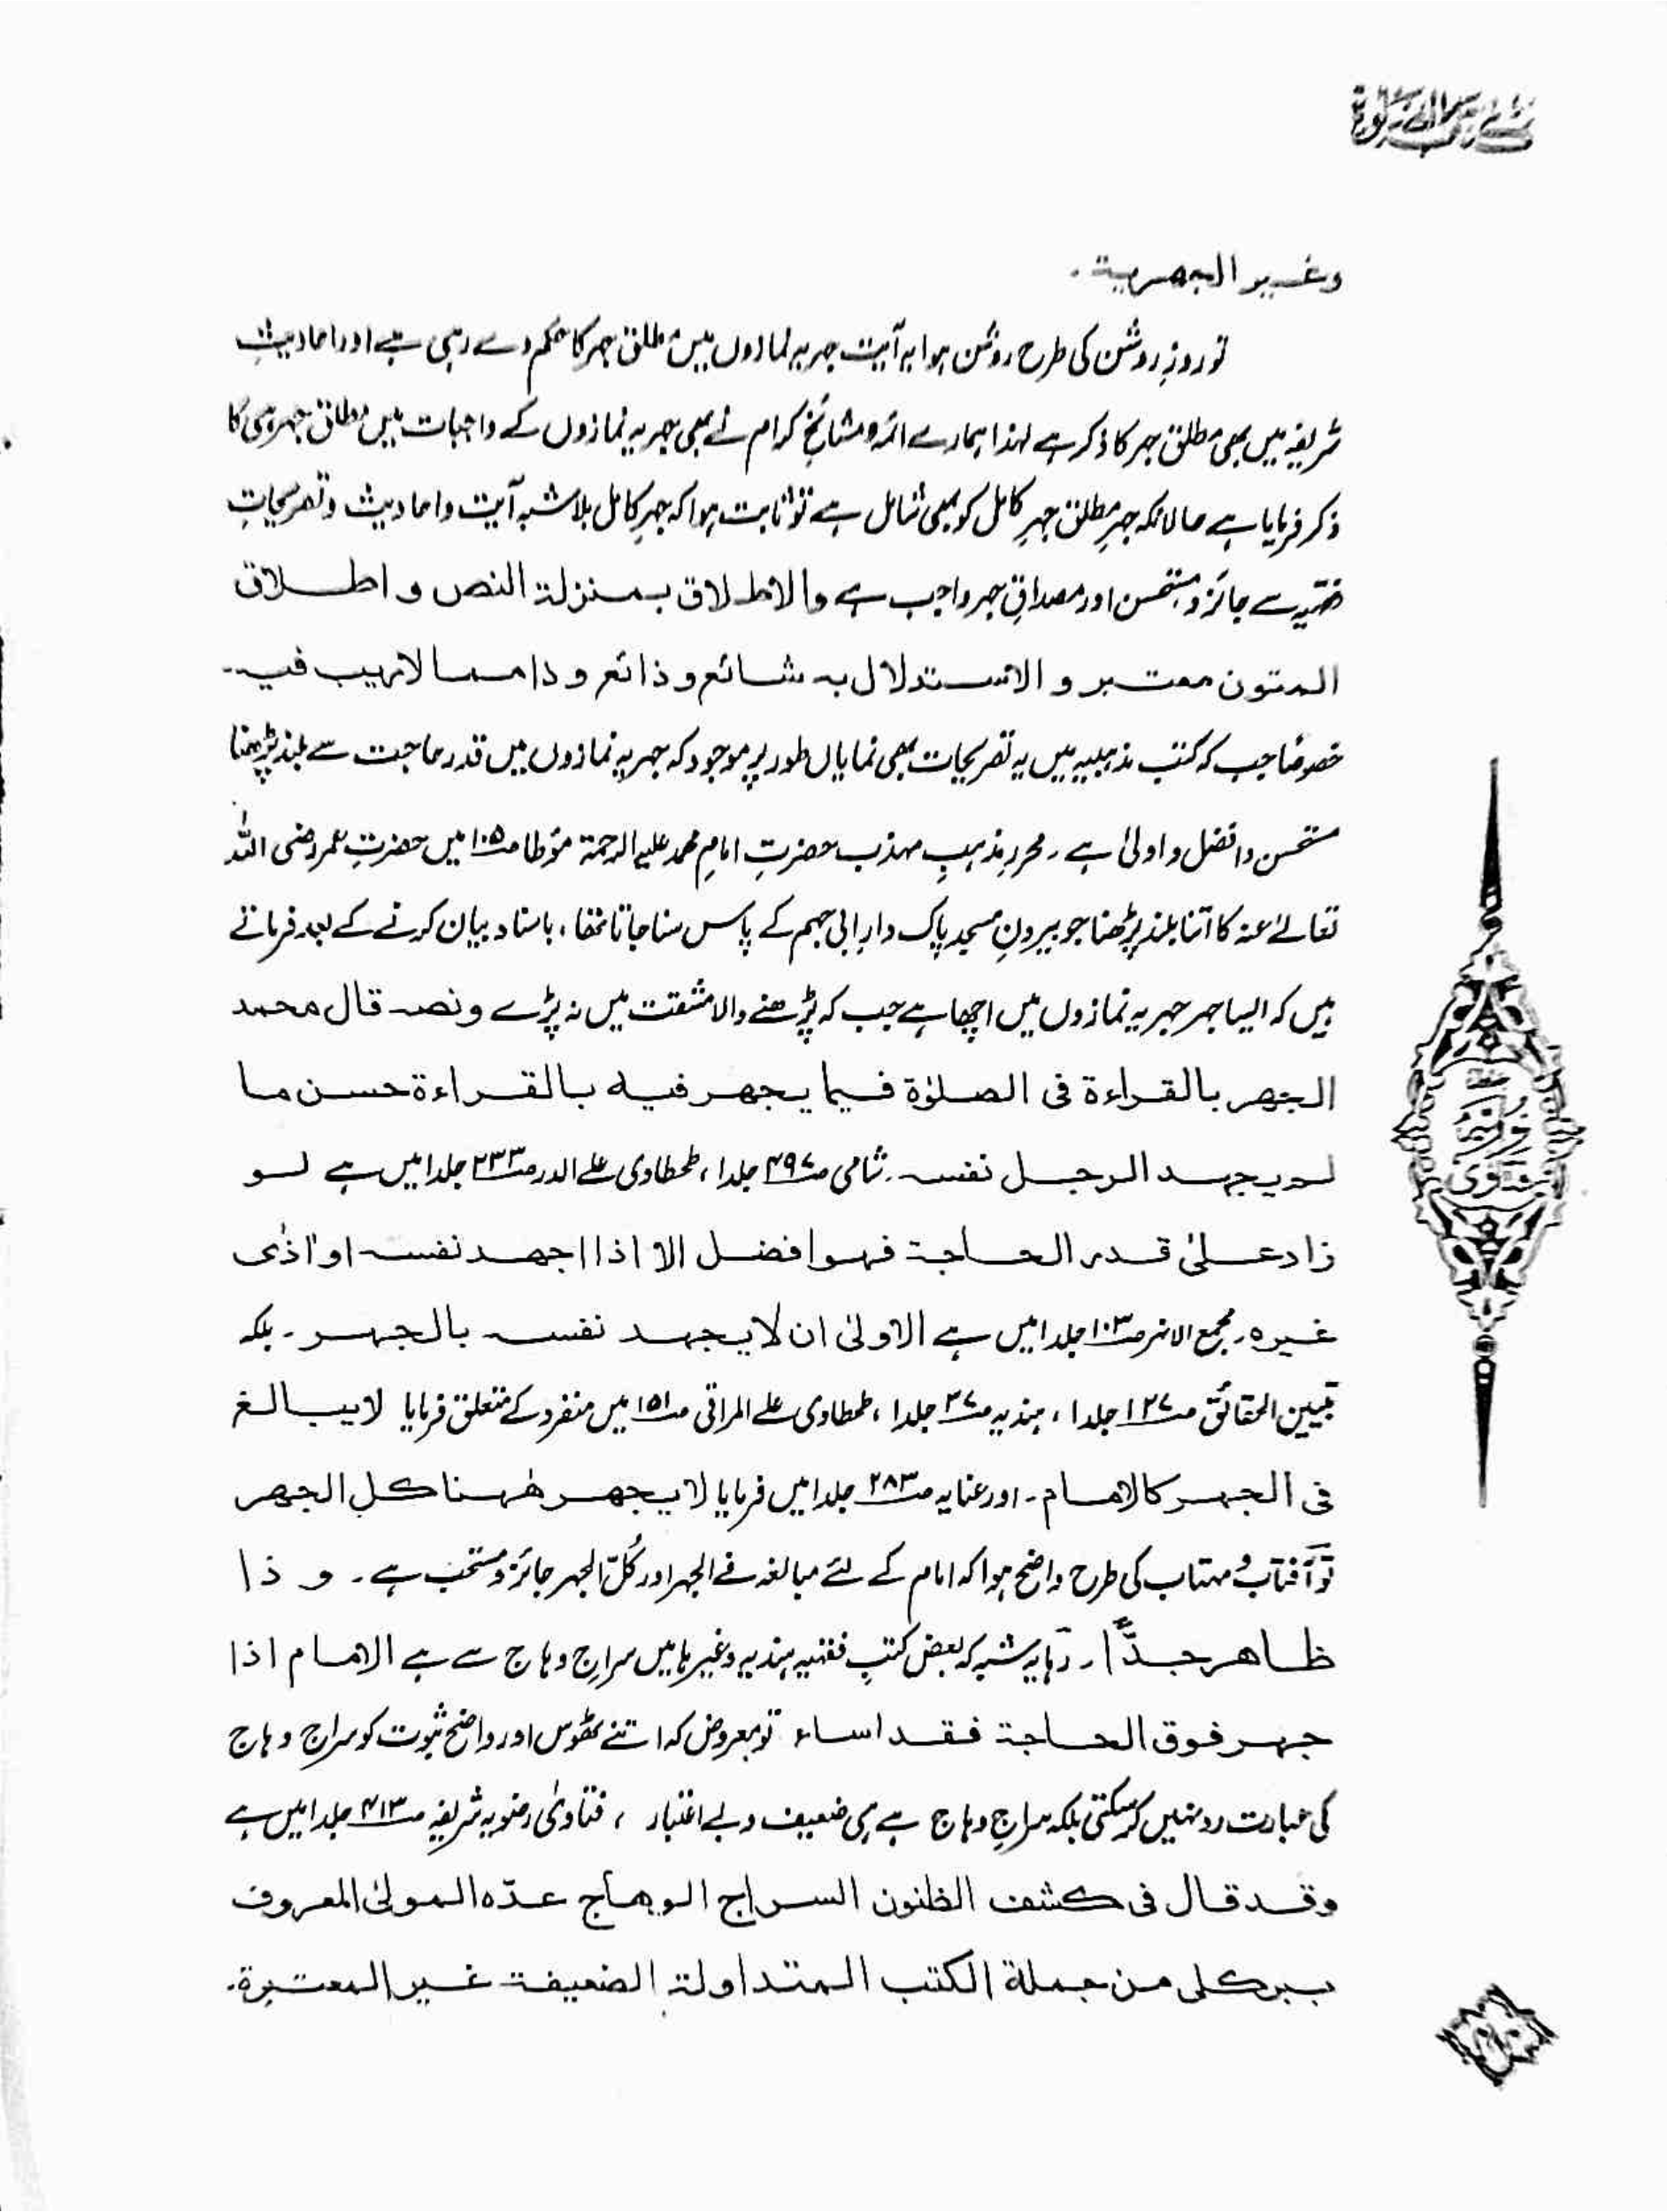 وغیر الجھریة.
تو روزِ روشن کی طرح روشن ہوا یہ آیت جہریہ نمازوں میں مطلق جہر کا حکم دے رہی ہے اور احادیثِ
شریفہ میں بھی مطلق جہر کا ذکر ہے لہذا ہمارے ائمہ و مشائخِ کرام نے بھی جہریہ نمازوں کے واجبات میں مطلق جہر ہی کا
ذکر فرمایا ہے حالانکہ جہرِ مطلق جہرِ کامل کو بھی شامل ہے تو ثابت ہوا کہ جہرِ کامل بلاشبہ آیت و احادیث و تصریحاتِ
سے جائز و مستحسن اور مصداقِ جہر واجب ہے والاطلاق بمنزلة النص و اطلاق
المتون معتبر و الاستدلال بہ شائع و ذائع و ذا مما لا ریب فیہ۔
خصوصًا جب کہ کتب مذہبیہ میں یہ تصریحات بھی نمایاں طور پر موجود کہ جہریہ نمازوں میں قدر حاجت سے بلند پڑھنا
مستحسن و افضل و اولیٰ ہے۔ محررِ مذہبِ مہذب حضرتِ امامِ محمد علیہ الرحمۃ مؤطا صـ۱۰۵ میں حضرتِ عمر رضی اللہ
تعالےٰ عنہ کا اتنا بلند پڑھنا جو بیرونِ مسجدِ پاک دارِ ابی جہم کے پاس سنا جاتا تھا، باسناد بیان کرنے کے بعد فرماتے
ہیں کہ ایسا جہر جہریہ نمازوں میں اچھا ہے جب کہ پڑھنے والا مشقت میں نہ پڑے ونصہ قال محمد
الجھر بالقراءة فی الصلوٰة فیما یجھر فیہ بالقراءة حسن ما
لم یجھد الرجل نفسہ۔ شامی صـ۴۹۷ جلد۱، طحطاوی علے الدر صـ۲۳۳ جلد۱ میں ہے لو
زاد علیٰ قدر الحاجة فھو افضل الا اذا اجھد نفسہ او اٰذٰی
غیرہ۔ مجمع الانہر صـ۱۰۳ جلد۱ میں ہے الاولیٰ ان لا یجھد نفسہ بالجھر۔ بلکہ
تبیین الحقائق صـ۱۲۷ جلد۱، ہندیہ صـ۳۷ جلد۱، طحطاوی علے المراقی صـ۱۵۱ میں منفرد کے متعلق فرمایا لا یبالغ
فی الجھر کالامام۔ اور عنایہ صـ۲۸۳ جلد۱ میں فرمایا لا یجھر ھٰھنا کل الجھر
تو آفتاب و مہتاب کی طرح واضح ہوا کہ امام کے لئے مبالغہ فے الجہر اور کُلّ الجہر جائز و مستحب ہے۔ و ذا
ظاھر جدًّا۔ رہا یہ شبہ کہ بعض کتبِ فقہیہ ہندیہ وغیرہا میں سراجِ وہاج سے ہے الامام اذا
جھر فوق الحاجة فقد اساء تو معروض کہ اتنے ٹھوس اور واضح ثبوت کو سراجِ وہاج
کی عبارت رد نہیں کر سکتی بلکہ سراجِ وہاج ہے ہی ضعیف و بے اعتبار ، فتاویٰ رضویہ شریفہ صـ۴۱۳ جلد۱ میں ہے
وقد قال فی کشف الظنون السراج الوھاج عدّہ المولیٰ المعروف
ببرکلی من جملة الکتب المتداولة الضعیفة غیر المعتبرة۔
فتاویٰ
نوریہ